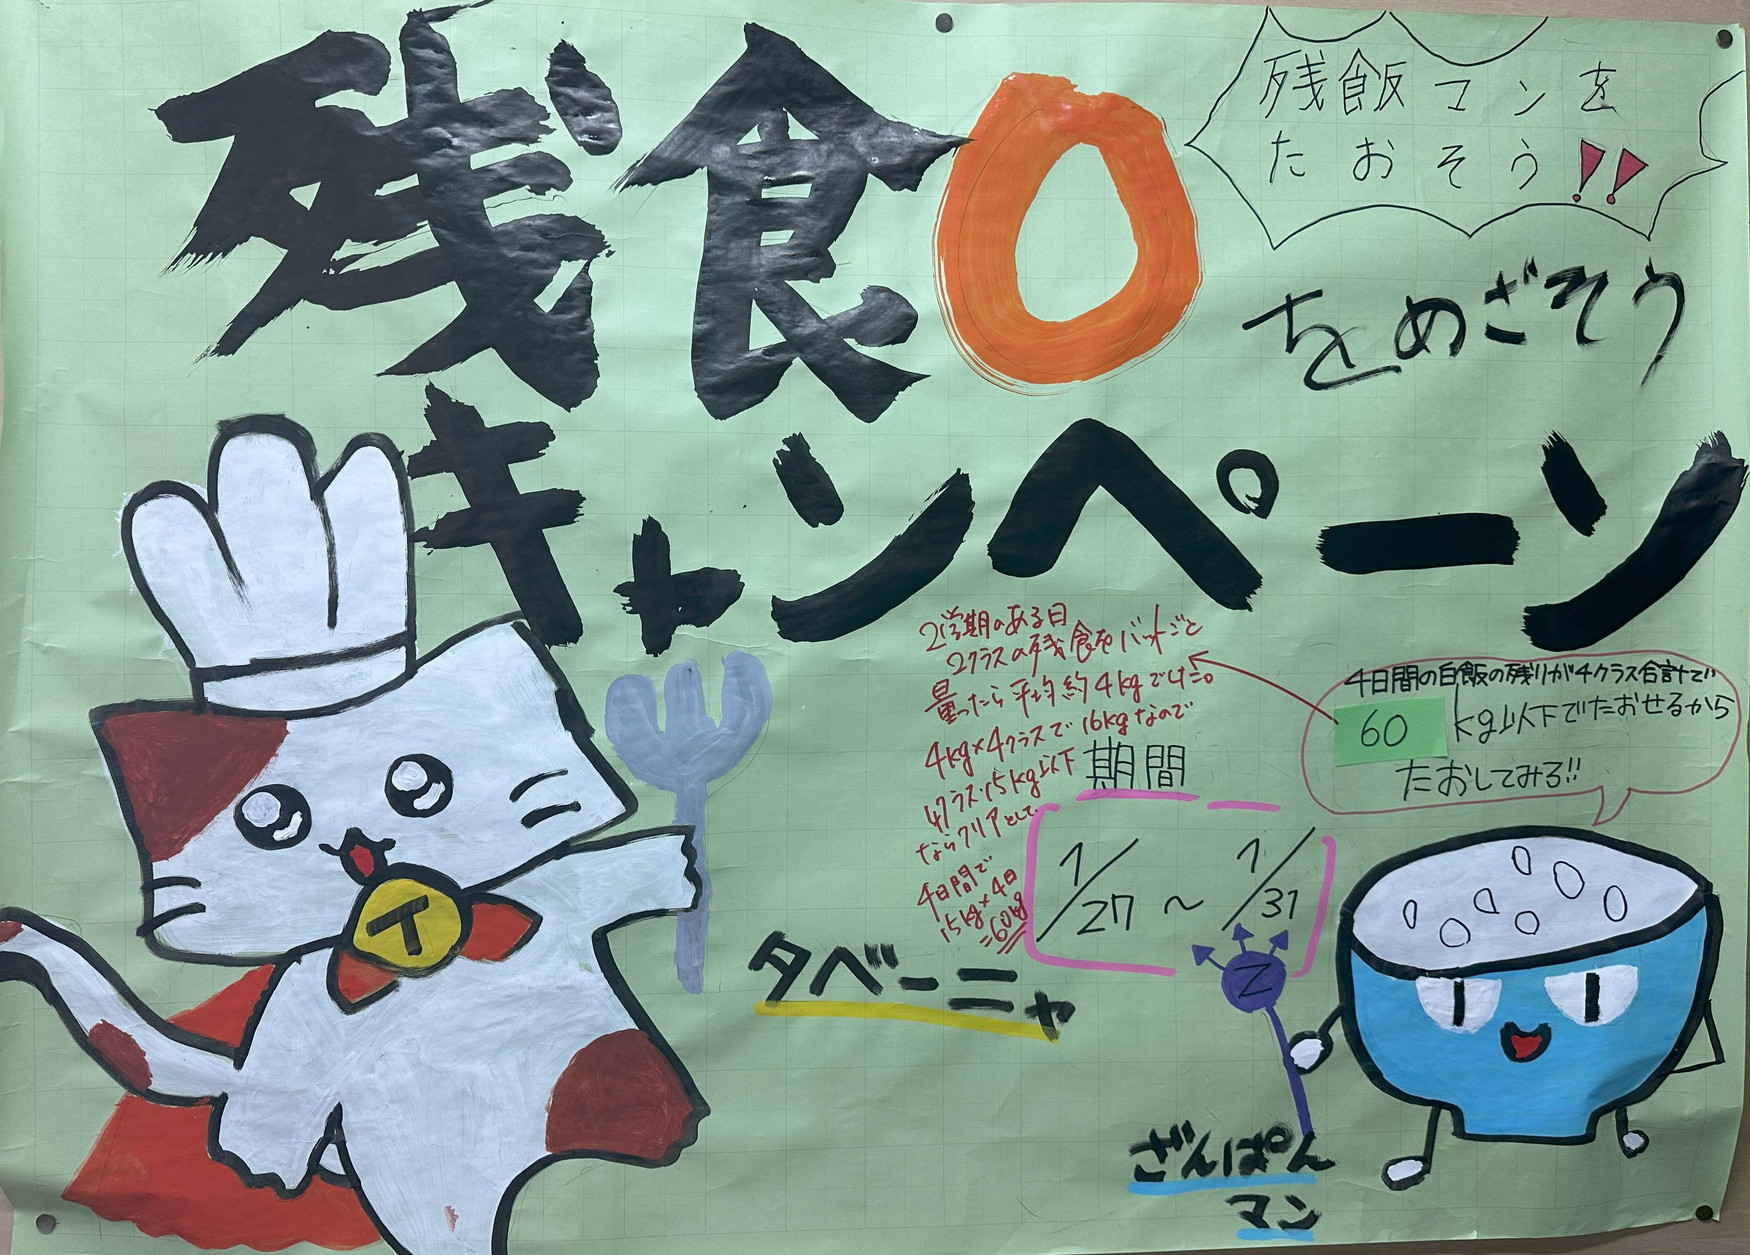 残食0
をめざそう
キャンペーン
残飯マンを
たおそう!!
2学期のある日
2クラスの残食をバットごと
量ったら平均約4kgでした。
4kg×4クラスで16kgなので
4クラス15kg以下
ならクリアとして
4日間で
15kg×4日
=60kg
4日間の白飯の残りが4クラス合計で
60 kg以下でたおせるから
たおしてみろ!!
期間
1/27~1/31
タベーニャ
ざんぱん
マン
T
Z